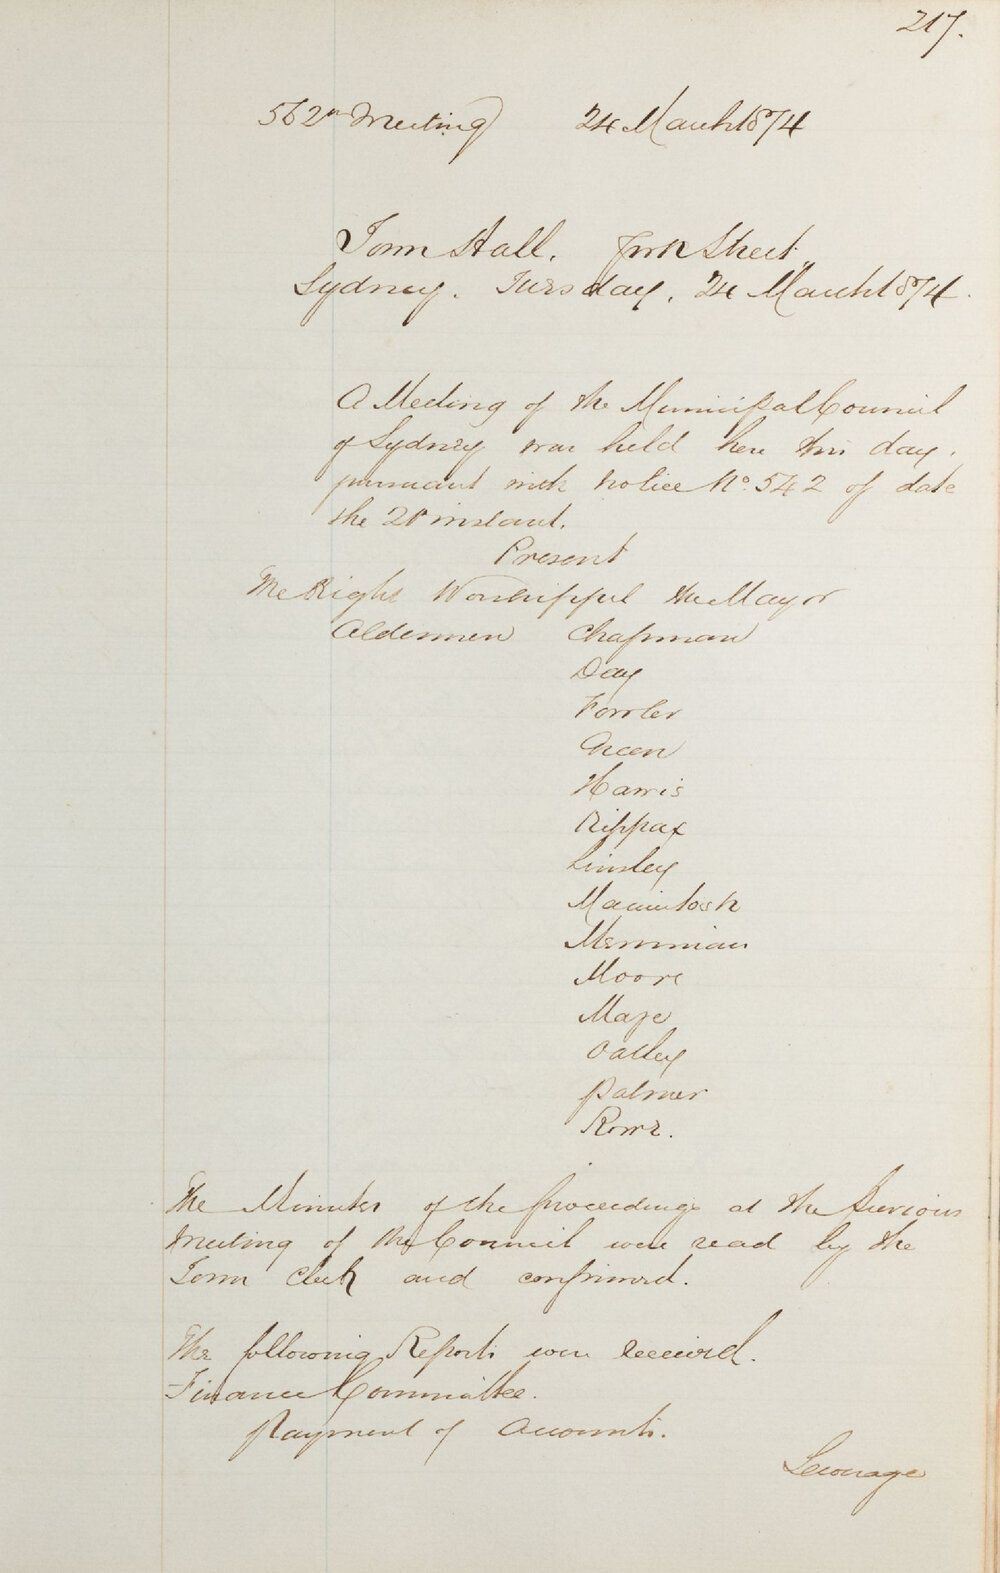 217.
562nd Meeting 24 March 1874
Town Hall. York Street,
Sydney. Tuesday, 24 March 1874.
A Meeting of the Municipal Council
of Sydney was held here this day,
pursuant with notice No. 542 of date
the 21st instant.
Present
The Right Worshipful the Mayor
Aldermen Chapman
Day
Fowler
Green
Harris
Kippax
Linsley
Macintosh
Merriman
Moore
Maze
Oatley
Palmer
Rowe.
The Minutes of the proceedings at the previous
meeting of the Council were read by the
Town Clerk and confirmed.
The following Reports were received.
Finance Committee.
Payment of Accounts.
Sewerage